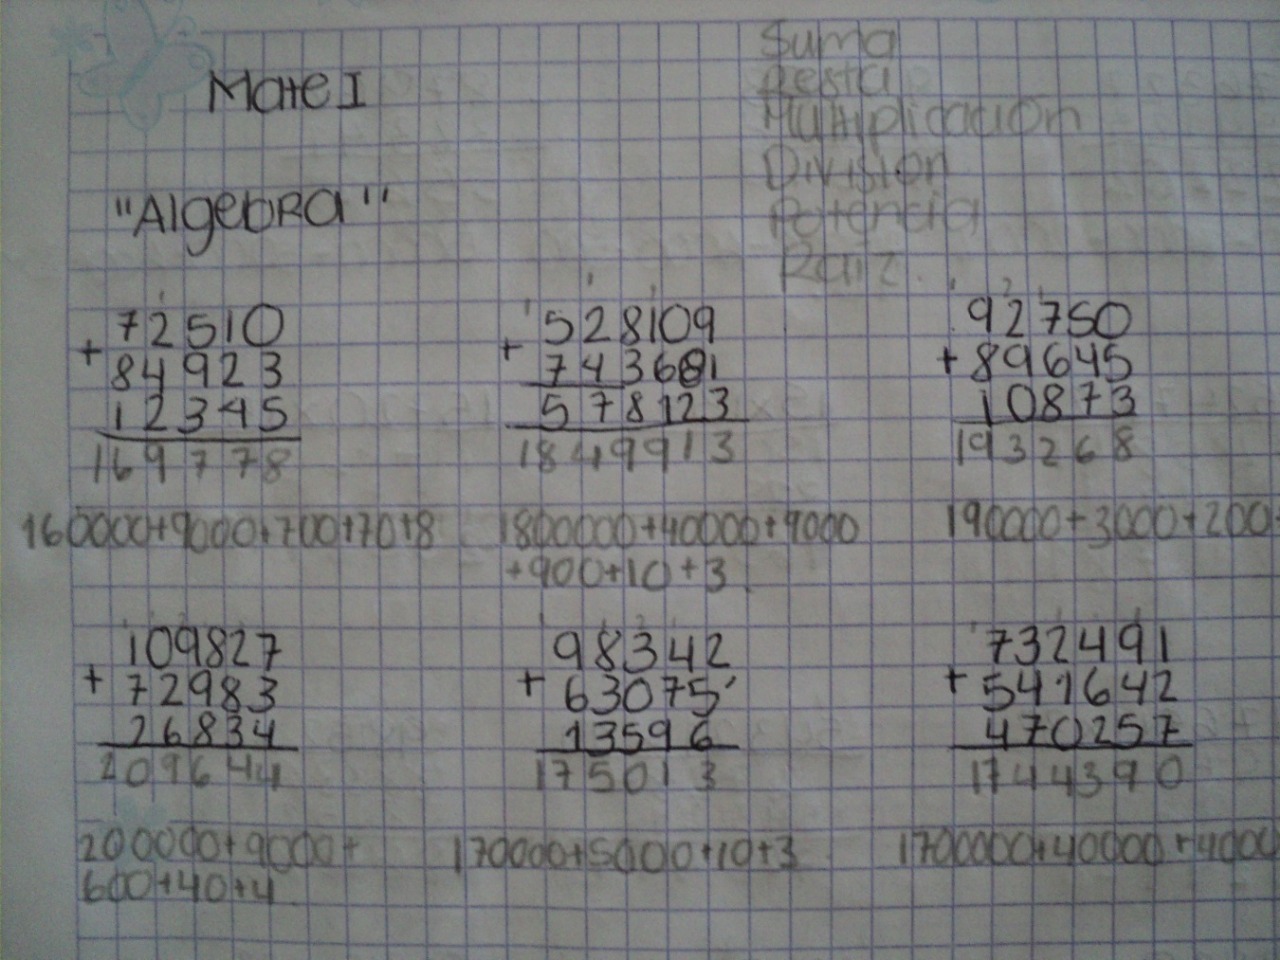 Mate I
"Algebra"
Suma
Resta
Multiplicación
División
Potencia
Raiz
72510
+ 84923
12345
169778
160000+9000+700+70+8
528109
+ 743681
578123
1849913
1800000+40000+9000
+900+10+3
92750
+ 89645
10873
193268
190000+3000+200
109827
+ 72983
26834
209644
200000+9000+
600+40+4
98342
+ 63075
13596
175013
170000+5000+10+3
732491
+ 541642
470257
1744390
1700000+40000+4000